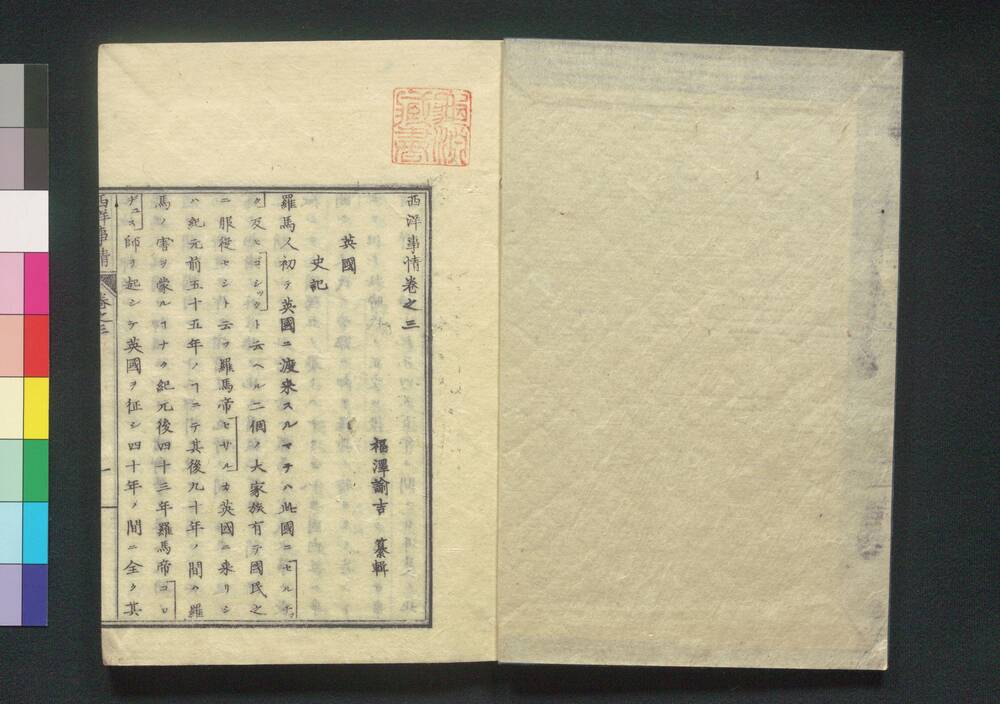 西洋事情卷之三
福澤諭吉 纂輯
英國
史記
羅馬人初テ英國ニ渡来スルマテハ此國ニセルチッ
ク及ヒゴシックト云ヘル二個ノ大家族有テ國民之
ニ服従セシト云フ羅馬帝セサルカ英國ニ来リシ
ハ紀元前五十五年ノヿニテ其後九十年ノ間ハ羅
馬ノ害ヲ蒙ルヿナク紀元後四十三年羅馬帝コロ
デュス師ヲ起シテ英國ヲ征シ四十年ノ間ニ全ク其
西洋事情 卷之三 一